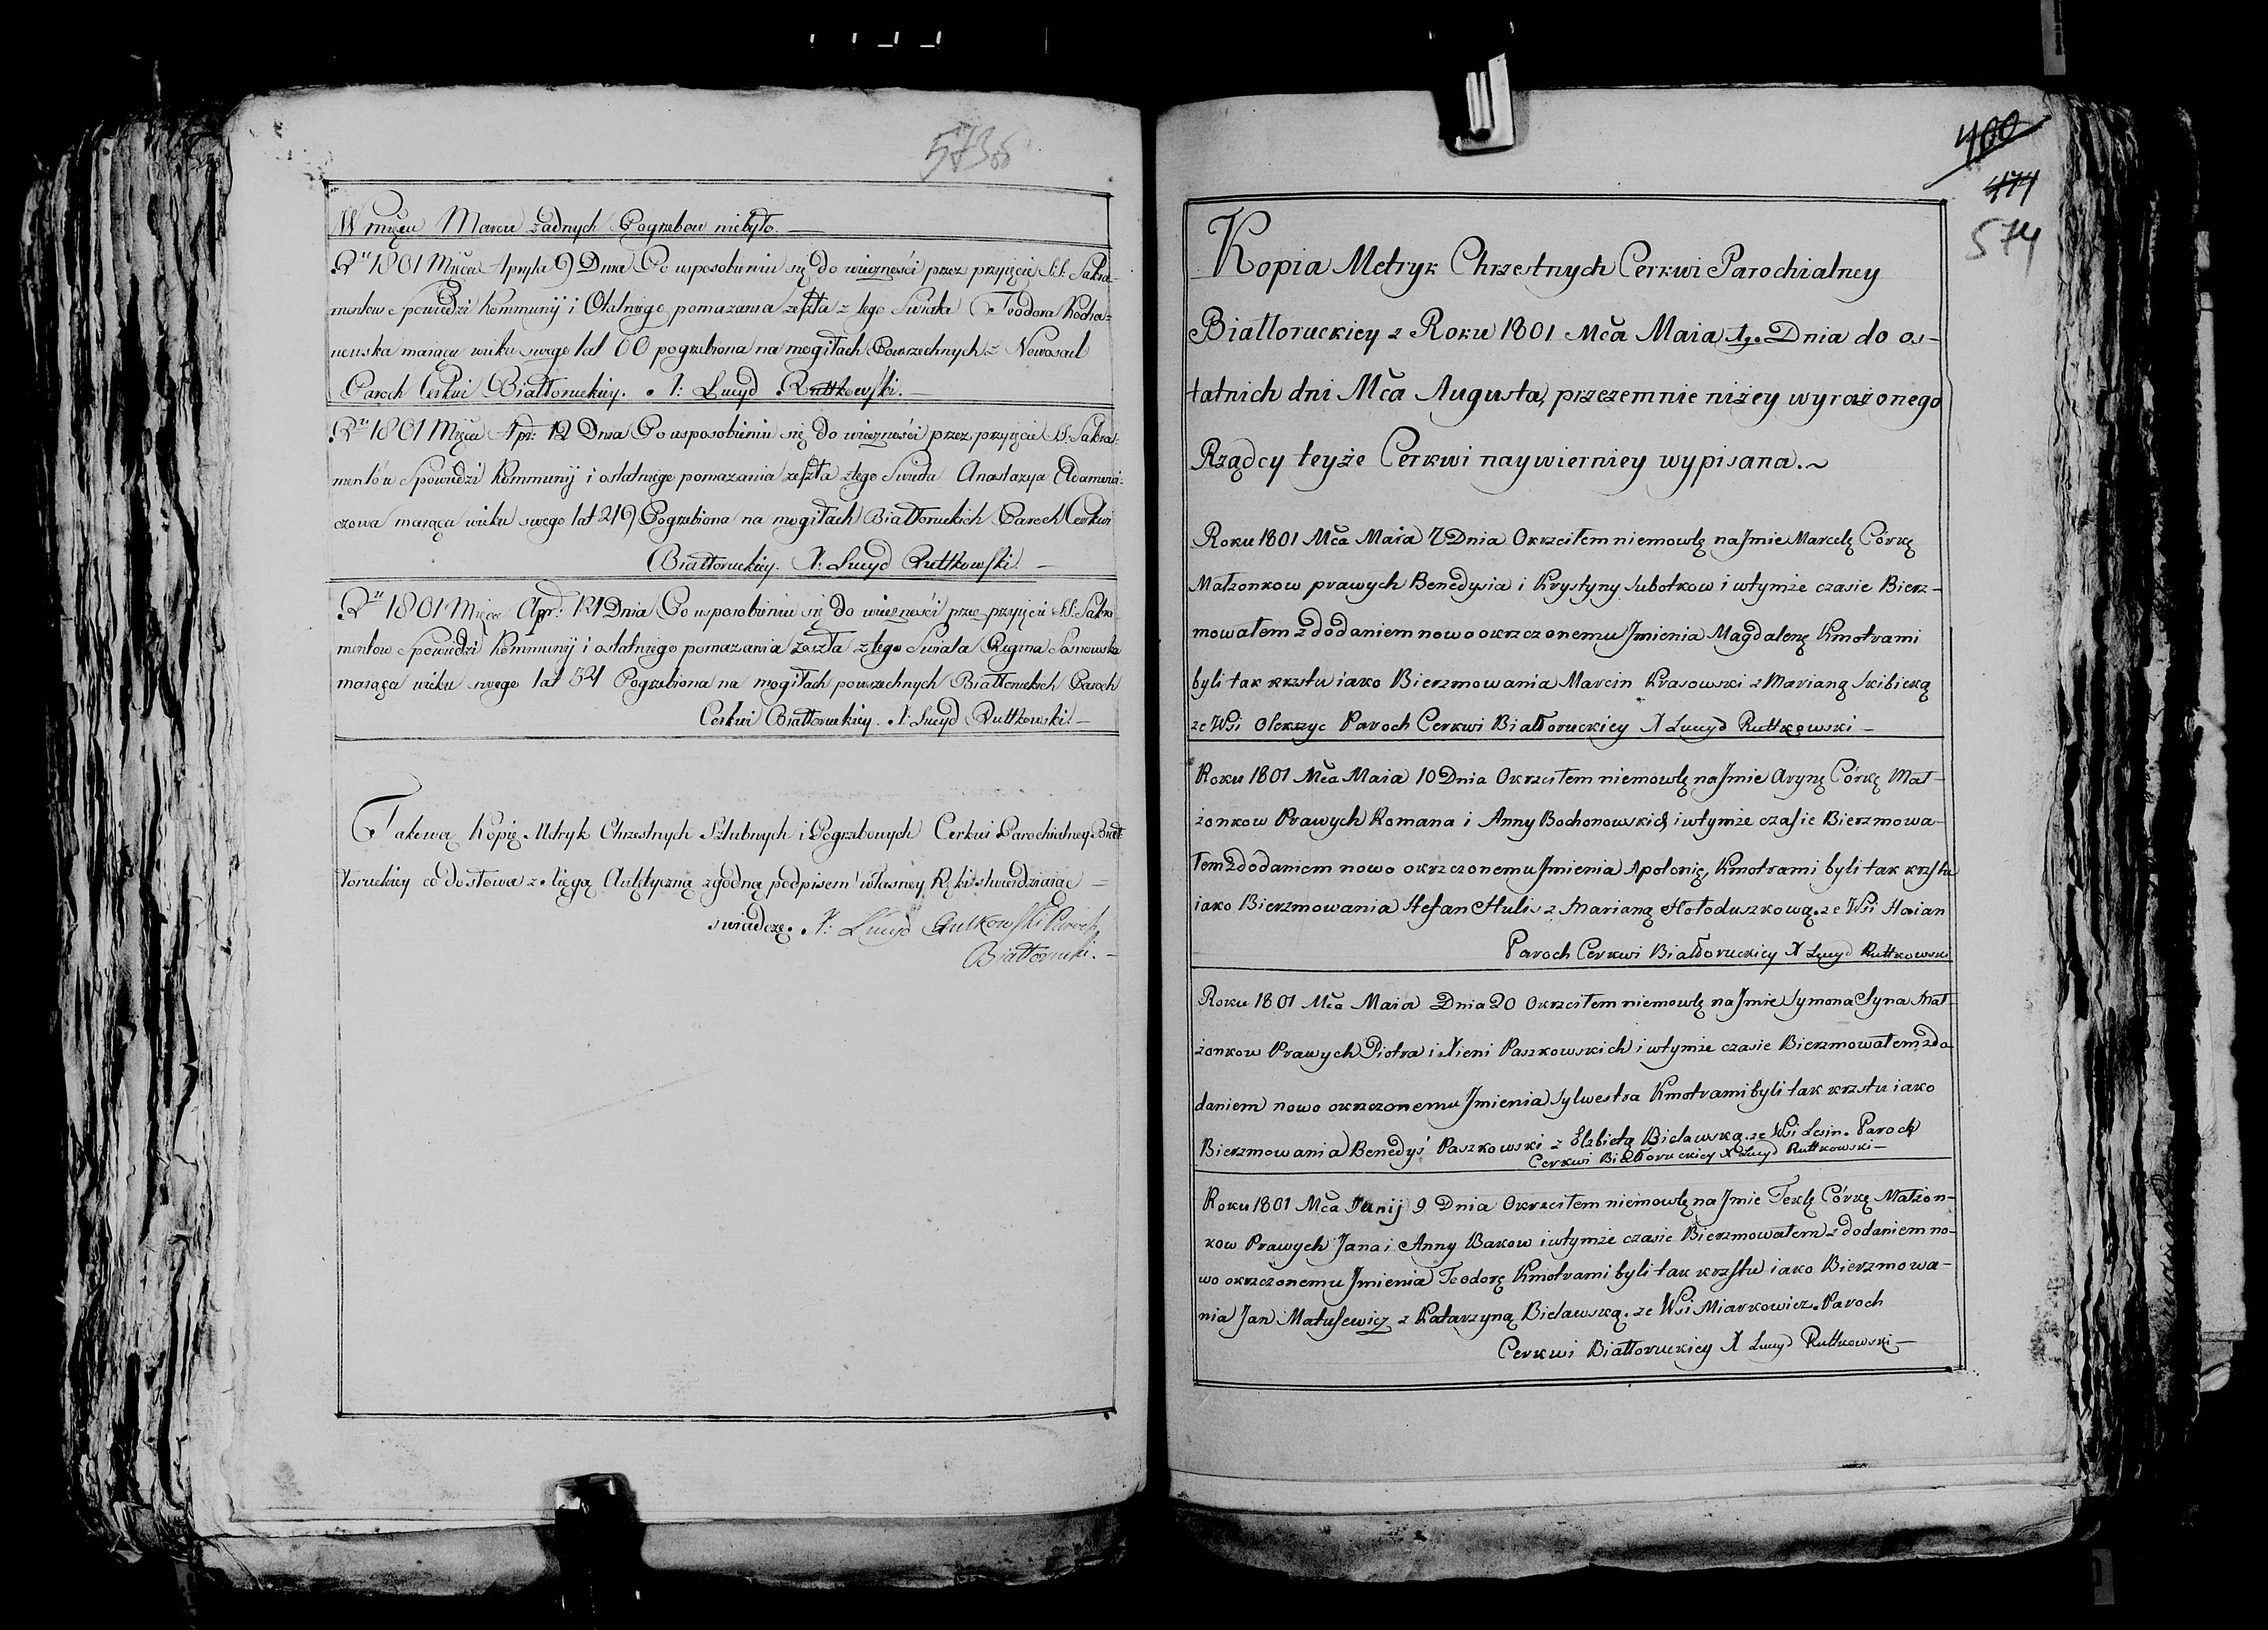 573
W mięcu Marcu żadnych Pogrzebow niebyło.—
Rᵘ 1801 Mięca Apryla 9 Dnia Po usposobieniu się do wieczności przez przyięcie S.S. Sakra-
mentow Spowiedzi Kommunij i Ostatniego pomazania zeszła z tego Swiata Teodora Kocha-
newska maiąca wieku swego lat 60 pogrzebiona na mogiłach Powszechnych z Nowosad
Paroch Cerkwi Białłoruckiey. X: Lucyd Ruttkowski.—
Rᵘ 1801 Mięca Apr: 12 Dnia Po usposobieniu się do wieczności przez przyięcie S.S. Sakra-
mentów Spowiedzi Kommunij i ostatniego pomazania zeszła z tego Swiata Anastazya Adamowi-
czowa maiąca wieku swego lat 29 Pogrzebiona na mogiłach Białłoruckich Paroch Cerkwi
Białłoruckiey. X: Lucyd Ruttkowski.—
Rᵘ 1801 Mięca Apr: 14 Dnia Po usposobieniu się do wieczności przez przyięcie S.S. Sakra-
mentow Spowiedzi Kommunij i ostatniego pomazania zaszła z tego Swiata Regina Sosnowska
maiąca wieku swego lat 54 Pogrzebiona na mogiłach powszechnych Białłoruckich Paroch
Cerkwi Białłoruckiey. X: Lucyd Ruttkowski.—
Takową Kopię Metryk Chrzestnych Szlubnych i Pogrzebowych Cerkwi Parochialney Biał-
łoruckiey co do słowa z xięgą Autętyczną zgodną podpisem własney Ręki stwierdzaiąc
swiadczę. X: Lucyd Rutkowski Paroch
Białłorucki.—
400
474
574
Kopia Metryk Chrzestnych Cerkwi Parochialney
Białłoruckiey z Roku 1801 Mca Maia 1go Dnia do os-
tatnich dni Mca Augusta, przezemnie niżey wyrażonego
Rządcy teyże Cerkwi naywierniey wypisana.~
Roku 1801 Mca Maia 7 Dnia Okrzciłem niemowlę na Jmie Marcelę Córkę
Małżonkow prawych Benedysia i Krystyny Subotkow i wtymże czasie Bierz-
mowałem z dodaniem nowo okrzczonemu Jmienia Magdalenę Kmotrami
byli tak krzstu iako Bierzmowania Marcin Krasowski z Marianą Skibicką
ze Wsi Olekszyc Paroch Cerkwi Białłoruckiey X Lucyd Ruttkowski—
Roku 1801 Mca Maia 10 Dnia Okrzciłem niemowlę na Jmie Arynę Córkę Mał-
żonkow Prawych Romana i Anny Bochonowskich i wtymże czasie Bierzmowa-
łem z dodaniem nowo okrzczonemu Jmienia Apolonię, Kmotrami byli tak krzstu
iako Bierzmowania Stefan Hulis z Marianą Hołoduszkową. ze Wsi Haian
Paroch Cerkwi Białłoruckiey X Lucyd Ruttkowski
Roku 1801 Mca Maia Dnia 20 Okrzciłem niemowlę na Jmie Symona Syna Mał-
żonkow Prawych Piotra i Xieni Paszkowskich i wtymże czasie Bierzmowałem z do-
daniem nowo okrzczonemu Jmienia Sylwestra Kmotrami byli tak krzstu iako
Bierzmowania Benedyś Paszkowski z Elzbietą Bielawską. ze Wsi Lesin. Paroch
Cerkwi Białłoruckiey X Lucyd Ruttkowski—
Roku 1801 Mca Junij 9 Dnia Okrzciłem niemowlę na Jmie Teklę Córkę Małżon-
kow Prawych Jana i Anny Bakow i wtymże czasie Bierzmowałem z dodaniem no-
wo okrzczonemu Jmienia Teodorę Kmotrami byli tak krzstu iako Bierzmowa-
nia Jan Matusewicz z Katarzyną Bielawską. ze Wsi Miarkowicz. Paroch
Cerkwi Białłoruckiey X Lucyd Ruttkowski—